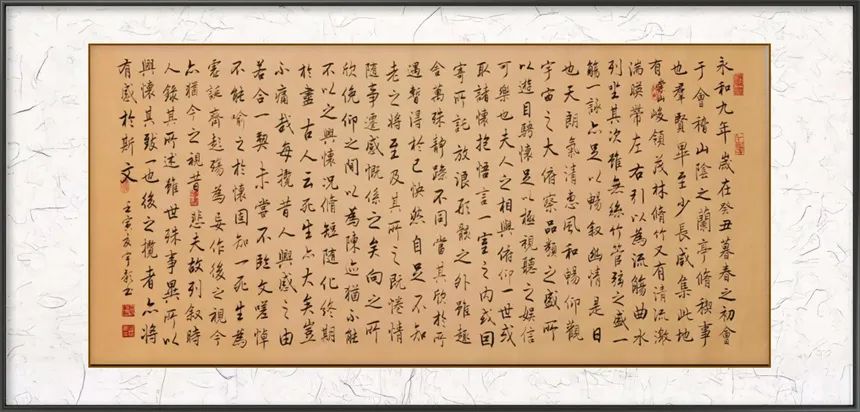 永和九年歲在癸丑暮春之初會
于會稽山陰之蘭亭脩稧事
也羣賢畢至少長咸集此地
有崇山峻領茂林脩竹又有清流激
湍暎帶左右引以為流觴曲水
列坐其次雖無絲竹管弦之盛一
觴一詠亦足以暢敘幽情是日
也天朗氣清惠風和暢仰觀
宇宙之大俯察品類之盛所
以遊目騁懷足以極視聽之娛信
可樂也夫人之相與俯仰一世或
取諸懷抱悟言一室之內或因
寄所託放浪形骸之外雖趣
舍萬殊靜躁不同當其欣於所
遇暫得於己快然自足不知
老之將至及其所之既惓情
隨事遷感慨係之矣向之所
欣俛仰之間以為陳迹猶不能
不以之興懷況脩短隨化終期
於盡古人云死生亦大矣豈
不痛哉每攬昔人興感之由
若合一契未嘗不臨文嗟悼
不能喻之於懷固知一死生為
虛誕齊彭殤為妄作後之視今
亦猶今之視昔悲夫故列敘時
人錄其所述雖世殊事異所以
興懷其致一也後之攬者亦將
有感於斯文
壬寅